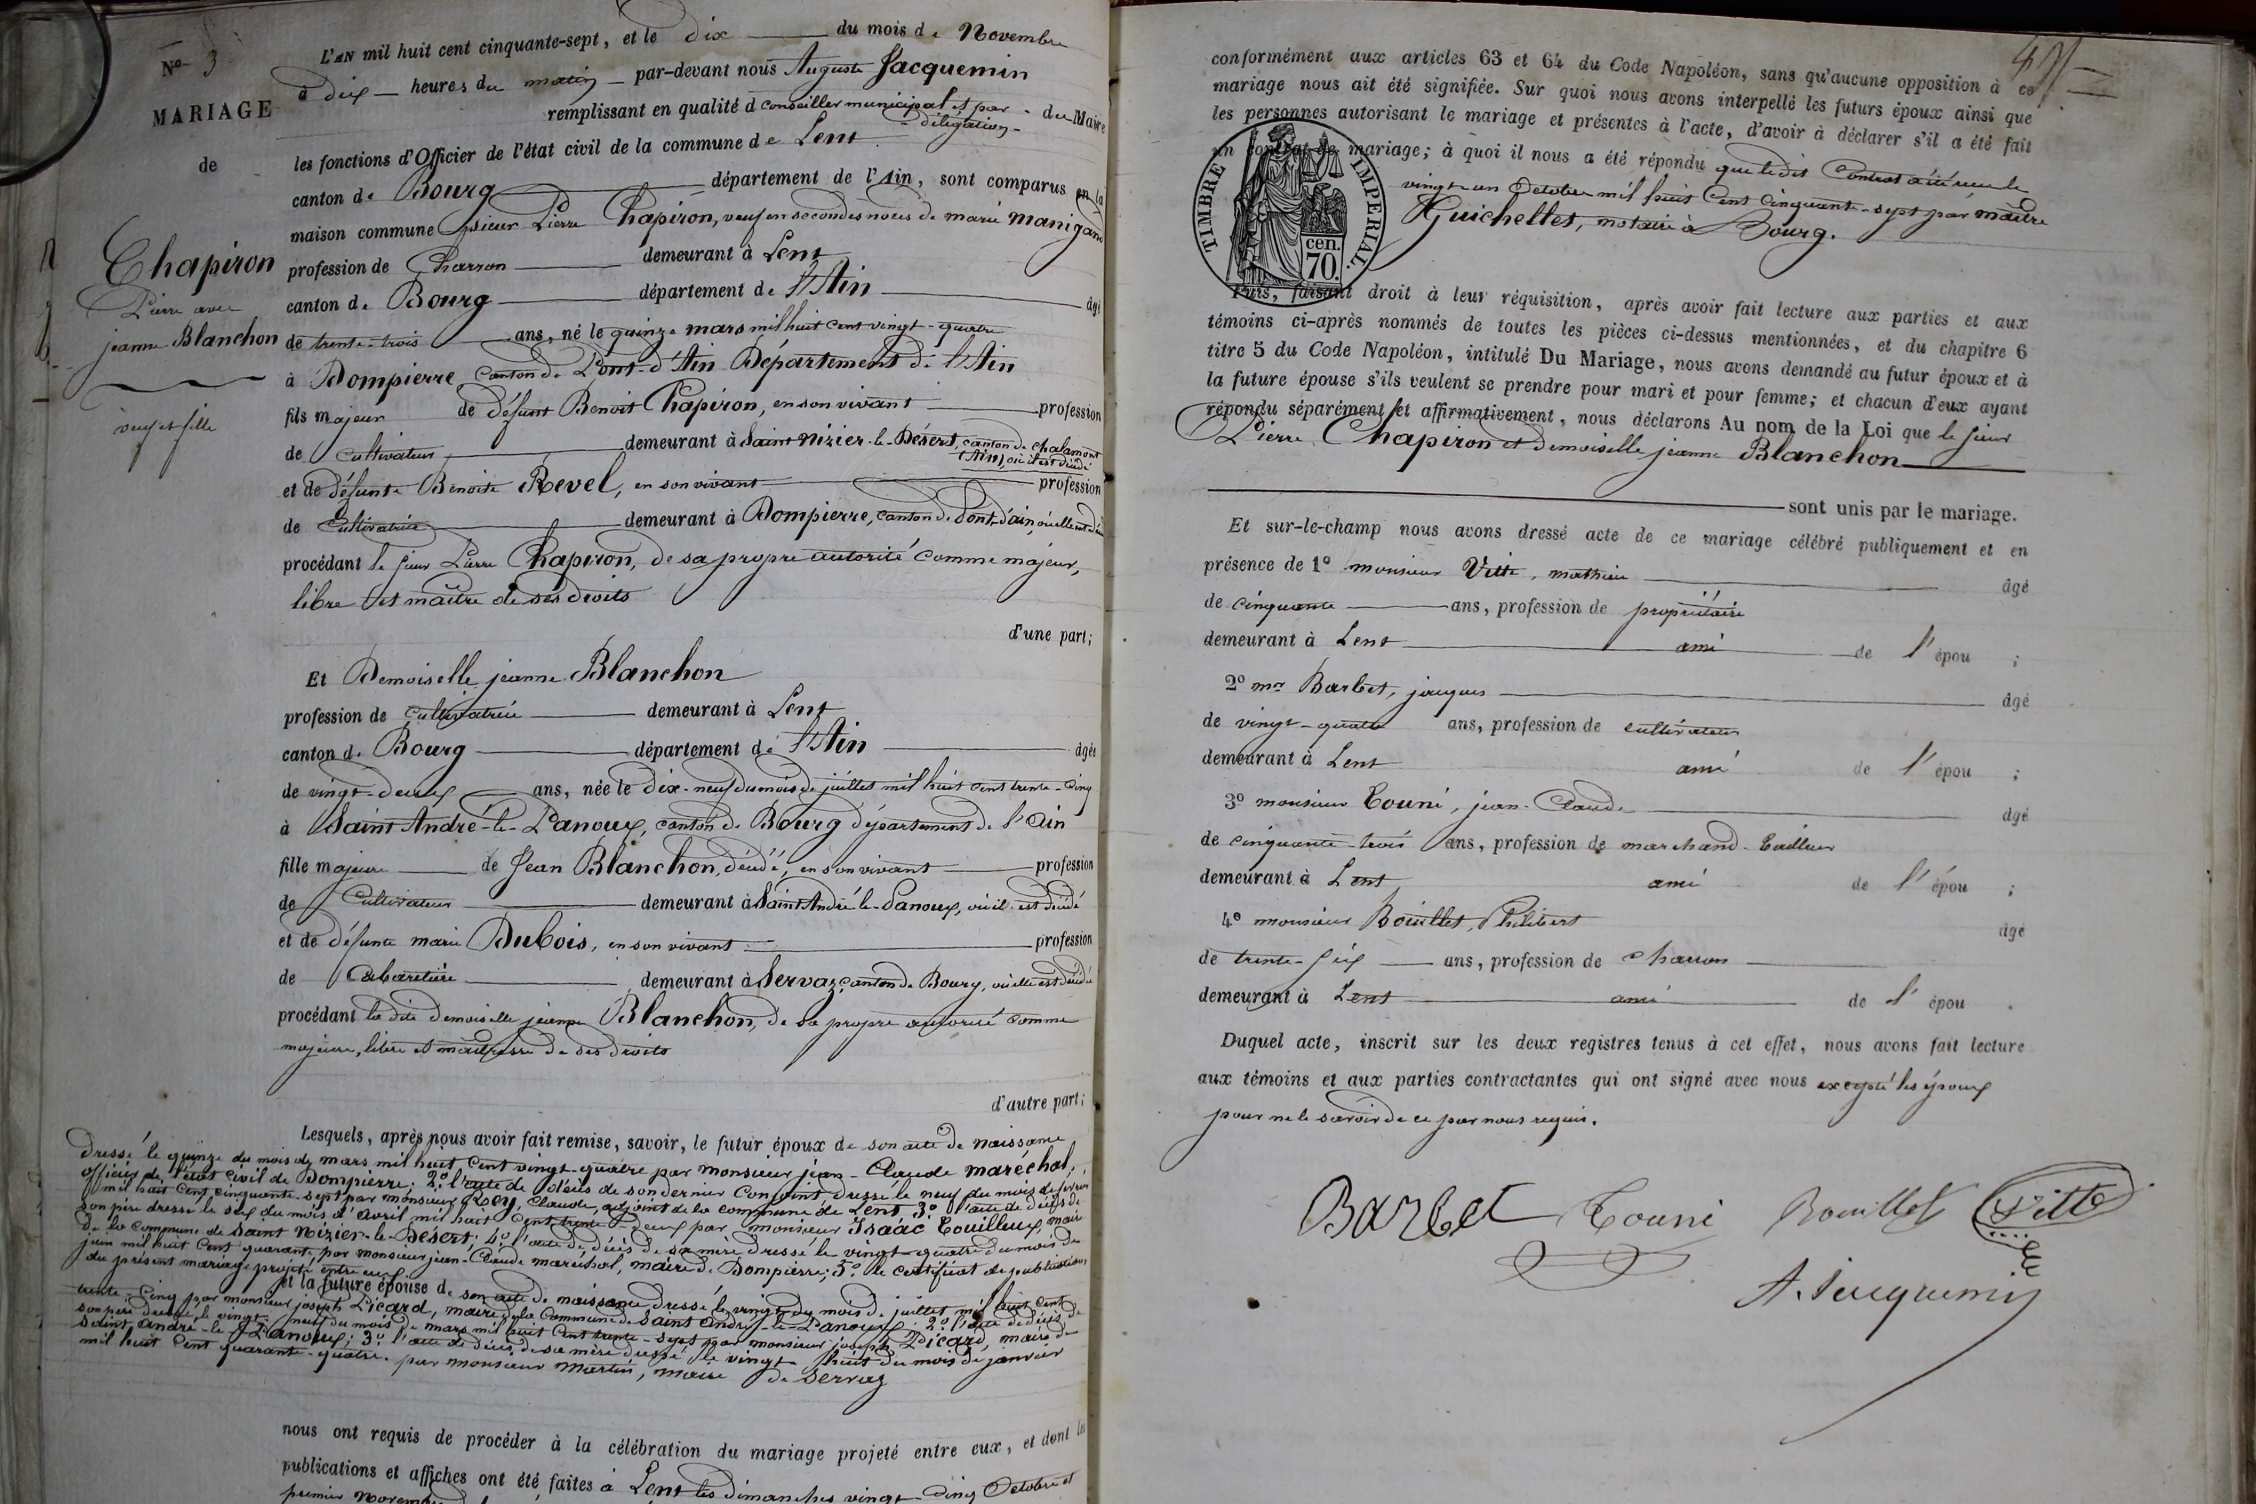 No 3
MARIAGE
de
Chapiron
Pierre avec
jeanne Blanchon
veuf et fille
L'AN mil huit cent cinquante-sept, et le dix du mois de Novembre
à dix heures du matin par-devant nous Auguste Jacquemin
remplissant en qualité de conseiller municipal et par délégation du Maire
les fonctions d'Officier de l'état civil de la commune de Lent
canton de Bourg département de l'Ain, sont comparus en la
maison commune sieur Pierre Chapiron, veuf en secondes noces de marie manigand
profession de Charron demeurant à Lent
canton de Bourg département de l'Ain âgé
de trente-trois ans, né le quinze mars mil huit cent vingt-quatre
à Dompierre canton de Pont-d'Ain Département de l'Ain
fils majeur de défunt Benoit Chapiron, en son vivant profession
de Cultivateur demeurant à Saint Nizier-le-Désert, canton de chalamont
(Ain), où il est décédé
et de défunte Benoite Revel, en son vivant profession
de Cultivatrice demeurant à Dompierre, canton de Pont-d'ain, où elle est
procédant le sieur Pierre Chapiron, de sa propre autorité comme majeur,
libre et maître de ses droits
d'une part;
Et Demoiselle jeanne Blanchon
profession de cultivatrice demeurant à Lent
canton de Bourg département de l'Ain âgée
de vingt-deux ans, née le dix-neuf du mois de juillet mil huit cent trente-cinq
à Saint André-le-Panoux, canton de Bourg département de l'Ain
fille majeure de Jean Blanchon, décédé, en son vivant profession
de Cultivateur demeurant à Saint André-le-Panoux, où il est décédé
et de défunte marie Dubois, en son vivant profession
de Cabaretière demeurant à Servaz, canton de Bourg, où elle est décédée
procédant la dite demoiselle jeanne Blanchon, de sa propre autorité comme
majeure, libre et maîtresse de ses droits
d'autre part;
Lesquels, après nous avoir fait remise, savoir, le futur époux de son acte de naissance
dressé le quinze du mois de mars mil huit cent vingt-quatre par monsieur jean-Claude maréchal,
officier de l'état civil de Dompierre; 2º l'acte de décès de son dernier conjoint dressé le neuf du mois de
mil huit cent cinquante-sept par monsieur Claude, adjoint de la commune de Lent 3º l'acte de décès de
son père dressé le six du mois d'avril mil huit cent trente-deux par monsieur Isaac Touilleux, maire
de la commune de Saint Nizier-le-Désert; 4º l'acte de décès de sa mère dressé le vingt-quatre du mois de
juin mil huit cent quarante par monsieur jean-Claude maréchal, maire de Dompierre; 5º le certificat de publications
du présent mariage projeté entre eux
et la future épouse de son acte de naissance dressé le vingt du mois de juillet mil huit cent
trente-cinq par monsieur joseph Picard, maire de la Commune de Saint André-le-Panoux; 2º l'acte de décès de
son père dressé le vingt-neuf du mois de mars mil huit cent trente-sept par monsieur joseph Picard, maire de
Saint André-le-Panoux; 3º l'acte de décès de sa mère dressé le vingt-huit du mois de janvier
mil huit cent quarante-quatre par monsieur Martin, maire de Servaz
nous ont requis de procéder à la célébration du mariage projeté entre eux, et dont les
publications et affiches ont été faites à Lent les dimanches vingt-cinq Octobre et
premier Novembre
conformément aux articles 63 et 64 du Code Napoléon, sans qu'aucune opposition à ce
mariage nous ait été signifiée. Sur quoi nous avons interpellé les futurs époux ainsi que
les personnes autorisant le mariage et présentes à l'acte, d'avoir à déclarer s'il a été fait
un contrat de mariage; à quoi il nous a été répondu que le dit Contrat a été reçu le
vingt-un Octobre mil huit cent cinquante-sept par maître
Guichellet, notaire à Bourg.
TIMBRE IMPERIAL.
cen.
70.
Puis, faisant droit à leur réquisition, après avoir fait lecture aux parties et aux
témoins ci-après nommés de toutes les pièces ci-dessus mentionnées, et du chapitre 6
titre 5 du Code Napoléon, intitulé Du Mariage, nous avons demandé au futur époux et à
la future épouse s'ils veulent se prendre pour mari et pour femme; et chacun d'eux ayant
répondu séparément et affirmativement, nous déclarons Au nom de la Loi que le sieur
Pierre Chapiron et demoiselle jeanne Blanchon
sont unis par le mariage.
Et sur-le-champ nous avons dressé acte de ce mariage célébré publiquement et en
présence de 1º monsieur Vitte, mathieu âgé
de cinquante ans, profession de propriétaire
demeurant à Lent ami de l'épou ;
2º mr Barbet, jacques âgé
de vingt-quatre ans, profession de cultivateur
demeurant à Lent ami de l'épou ;
3º monsieur Touni, jean-Claude âgé
de cinquante-trois ans, profession de marchand-tailleur
demeurant à Lent ami de l'épou ;
4º monsieur Bouillet, Philibert âgé
de trente-six ans, profession de charron
demeurant à Lent ami de l'épou .
Duquel acte, inscrit sur les deux registres tenus à cet effet, nous avons fait lecture
aux témoins et aux parties contractantes qui ont signé avec nous excepté les époux
pour ne le savoir de ce par nous requis.
Barbet Touni Bouillet Vitte
A. Jacquemin